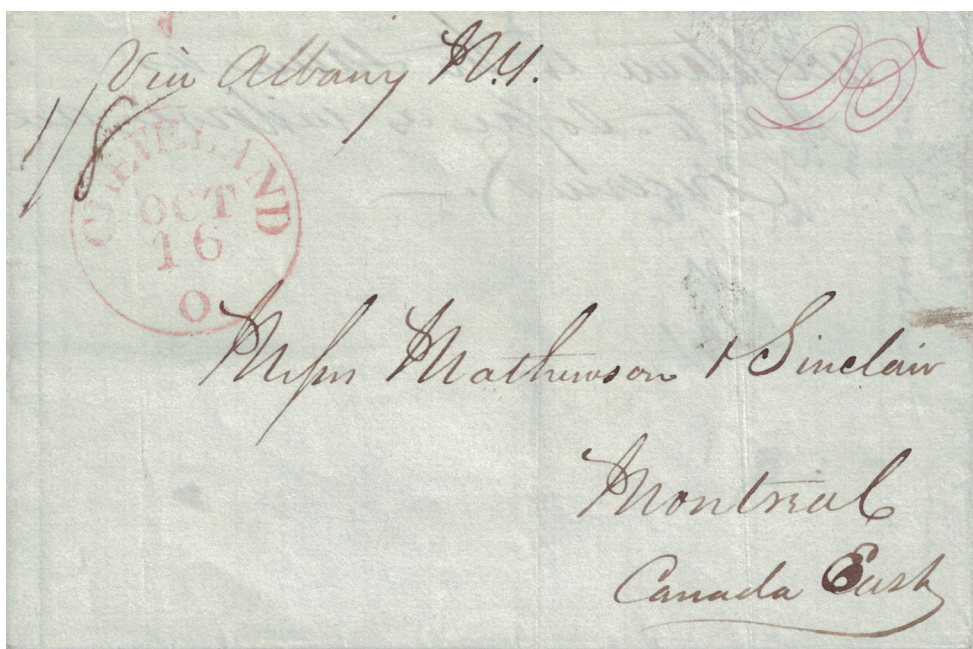 Via Albany N.Y.
1/8
CLEVELAND
OCT
16
O
Messrs Mathewson & Sinclair
Montreal
Canada East